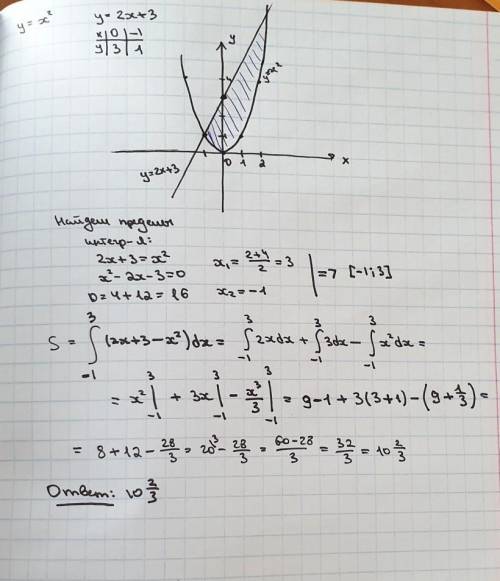 y = x²
y = 2x+3
x | 0 | -1
y | 3 | 1
y
4
y=x²
1
0 1 2
x
y=2x+3
Найдем пределы
интегр-я:
2x+3 = x²
x² - 2x - 3 = 0
D = 4 + 12 = 16
x₁ = (2+4)/2 = 3
x₂ = -1
=> [-1; 3]
S = ∫₋₁³ (2x+3-x²)dx = ∫₋₁³ 2xdx + ∫₋₁³ 3dx - ∫₋₁³ x²dx =
= x² |₋₁³ + 3x |₋₁³ - x³/3 |₋₁³ = 9-1+3(3+1)-(9+1/3) =
= 8+12 - 28/3 = 20³ - 28/3 = (60-28)/3 = 32/3 = 10 2/3
Ответ: 10 2/3